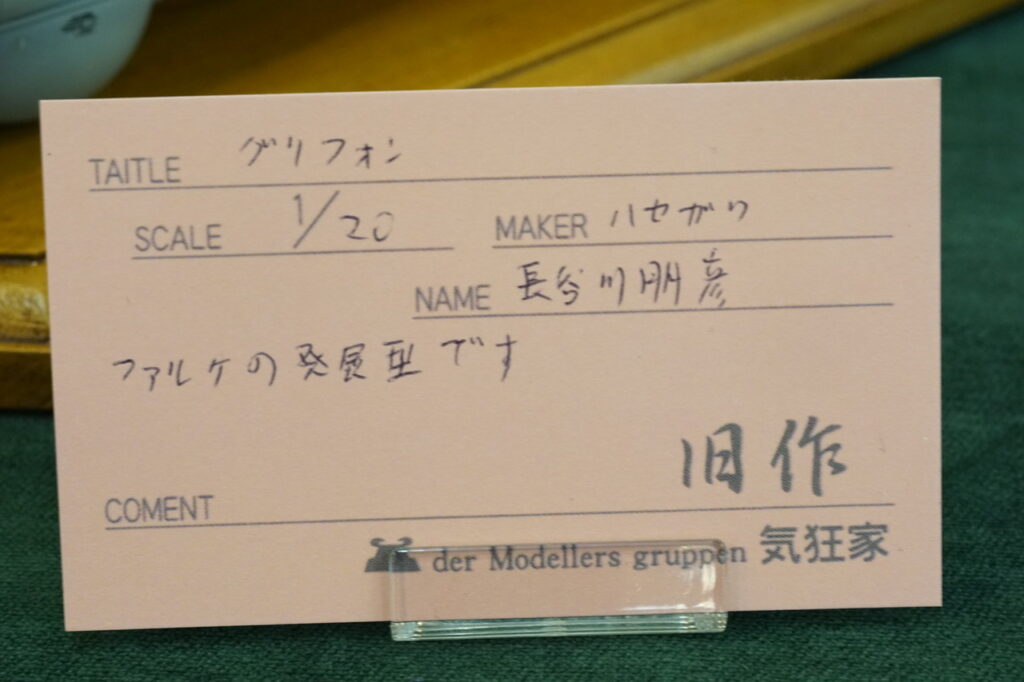 TAITLE グリフォン
SCALE 1/20 MAKER ハセガワ
NAME 長谷川朋彦
ファルケの発展型です
旧作
COMENT
der Modellers gruppen 気狂家